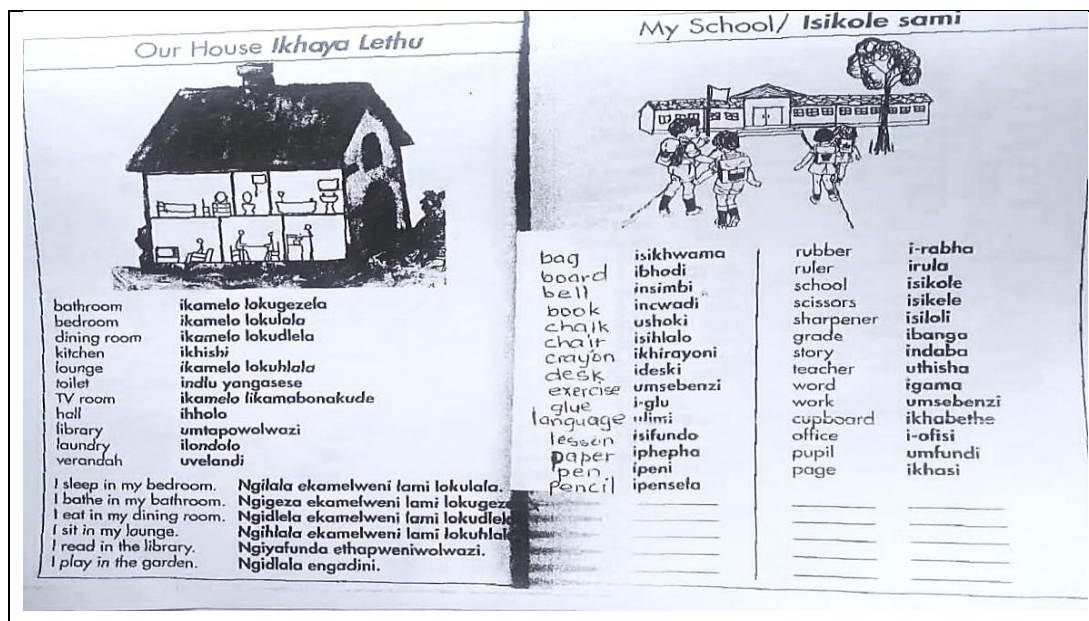 Our House Ikhaya Lethu
bathroom ikamelo lokugezela
bedroom ikamelo lokulala
dining room ikamelo lokudlela
kitchen ikhishi
lounge ikamelo lokuhlala
toilet indlu yangasese
TV room ikamelo likamabonakude
hall ihholo
library umtapowolwazi
laundry ilondolo
verandah uvelandi
I sleep in my bedroom. Ngilala ekamelweni lami lokulala.
I bathe in my bathroom. Ngigeza ekamelweni lami lokugez
I eat in my dining room. Ngidlela ekamelweni lami lokudlel
I sit in my lounge. Ngihlala ekamelweni lami lokuhlal
I read in the library. Ngiyafunda ethapweniwolwazi.
I play in the garden. Ngidlala engadini.
My School/ Isikole sami
bag isikhwama
board ibhodi
bell insimbi
book incwadi
chalk ushoki
chair isihlalo
crayon ikhirayoni
desk ideski
exercise umsebenzi
glue i-glu
language ulimi
lesson isifundo
paper iphepha
pen ipeni
pencil ipensela
rubber i-rabha
ruler irula
school isikole
scissors isikele
sharpener isiloli
grade ibanga
story indaba
teacher uthisha
word igama
work umsebenzi
cupboard ikhabethe
office i-ofisi
pupil umfundi
page ikhasi